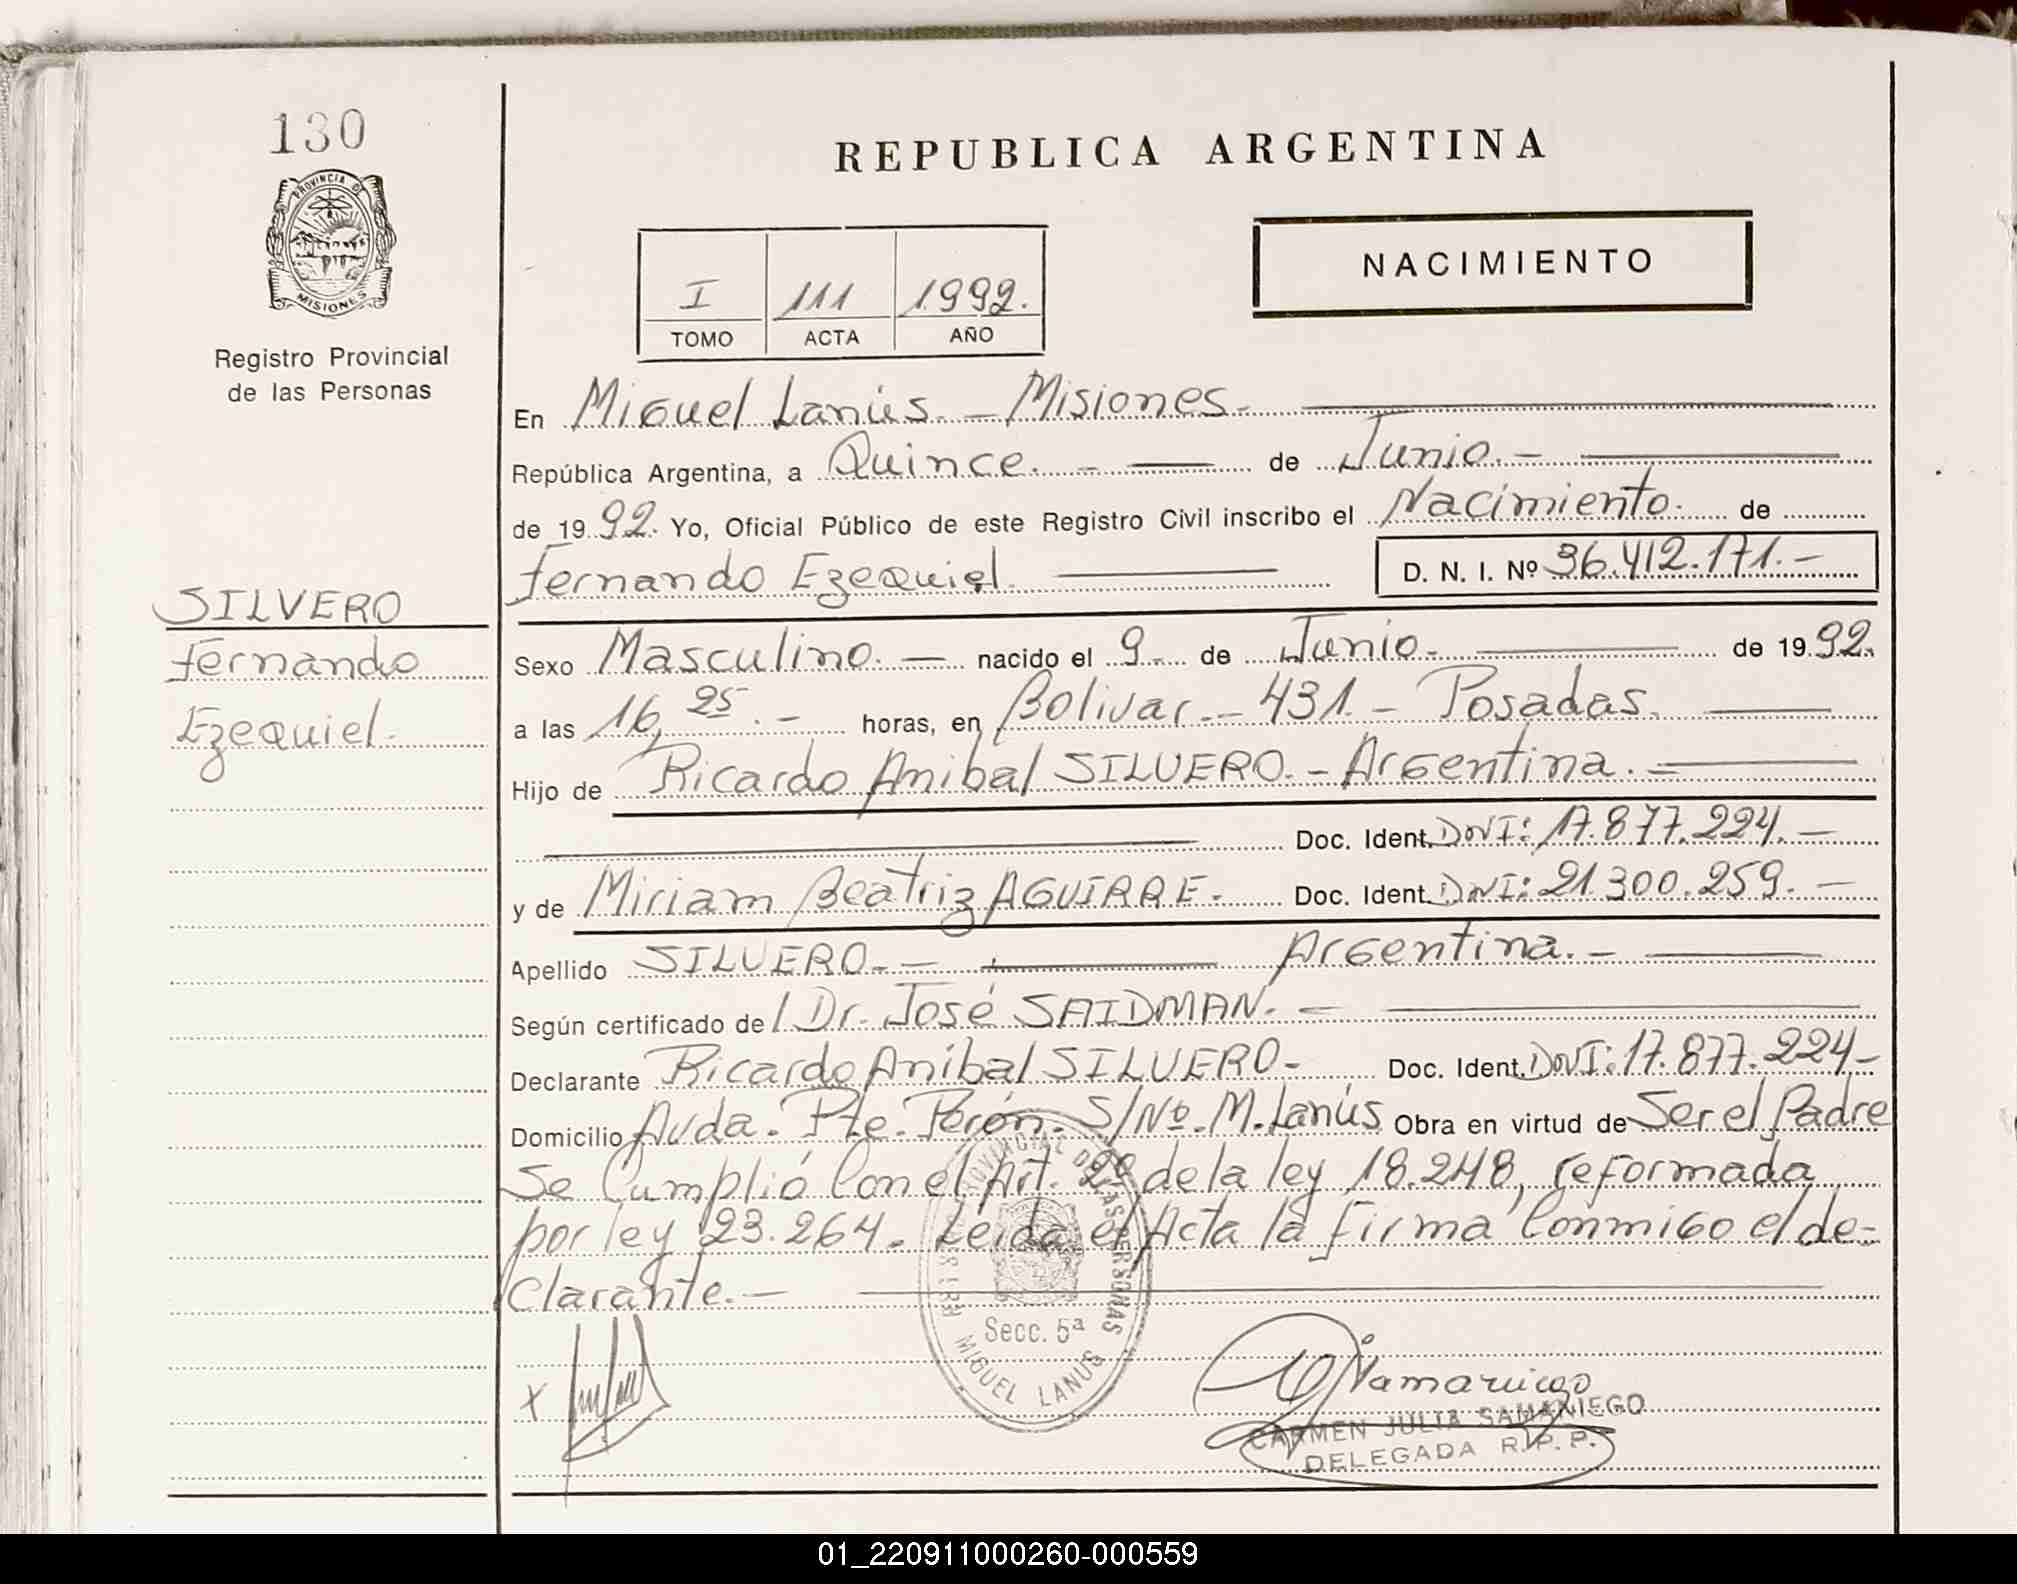 130
PROVINCIA DE
MISIONES
Registro Provincial
de las Personas
SILVERO
Fernando
Ezequiel.
REPUBLICA ARGENTINA
I 111 1992.
TOMO ACTA AÑO
NACIMIENTO
En Miguel Lanús. - Misiones.
República Argentina, a Quince. - de Junio. -
de 1992. Yo, Oficial Público de este Registro Civil inscribo el Nacimiento. de
Fernando Ezequiel. D. N. I. Nº 36.412.171. -
Sexo Masculino. - nacido el 9. de Junio. de 1992.
a las 16,25. - horas, en Bolivar - 431 - Posadas.
Hijo de Ricardo Anibal SILVERO. - Argentina. -
Doc. Ident. DNI: 17.877.224. -
y de Miriam Beatriz AGUIRRE. Doc. Ident. DNI: 21.300.259. -
Apellido SILVERO. - Argentina. -
Según certificado de Dr. José SAIDMAN. -
Declarante Ricardo Aníbal SILVERO - Doc. Ident. DNI: 17.877.224 -
Domicilio Avda. Pte. Perón. S/Nº. M. Lanús Obra en virtud de Ser el Padre
Se Cumplió Con el Art. 2º de la ley 18.248, reformada
por ley 23.264. Leida el Acta la firma Conmigo el de-
Clarante. -
REGISTRO PROVINCIAL DE LAS PERSONAS
Secc. 5ª
MIGUEL LANUS
X
Samaniego
CARMEN JULIA SAMANIEGO
DELEGADA R. P. P.
01_220911000260-000559